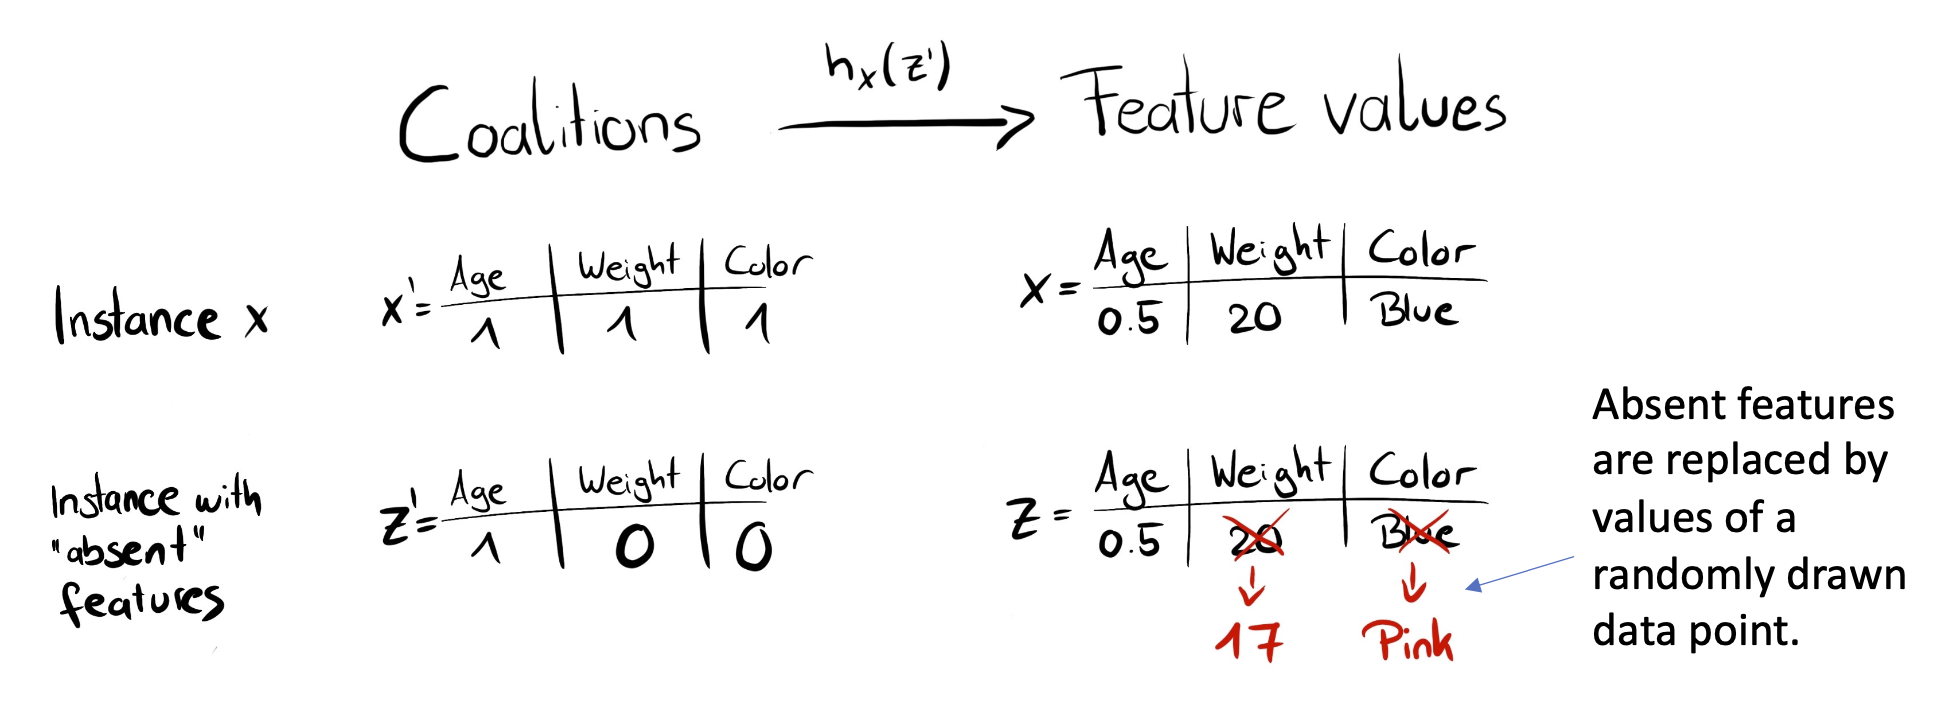 Coalitions hx(z') Feature values
Instance x
x'=
Age Weight Color
1 1 1
x=
Age Weight Color
0.5 20 Blue
Instance with
"absent"
features
z'=
Age Weight Color
1 0 0
z=
Age Weight Color
0.5 20 Blue
17 Pink
Absent features
are replaced by
values of a
randomly drawn
data point.